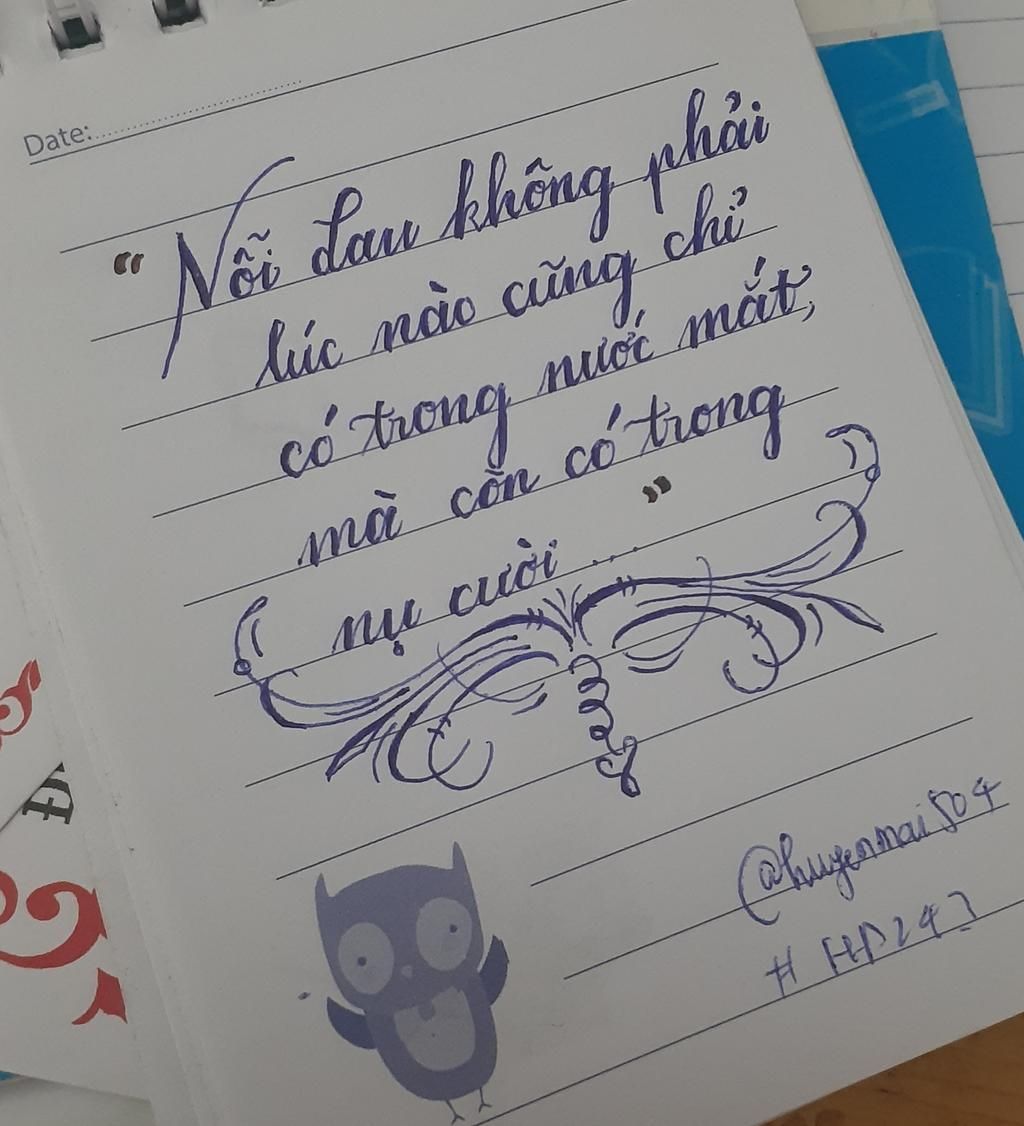 Date:
“Nỗi đau không phải
lúc nào cũng chỉ
có trong nước mắt,
mà còn có trong
nụ cười ...”
@huyenmai504
# HP243
Đ